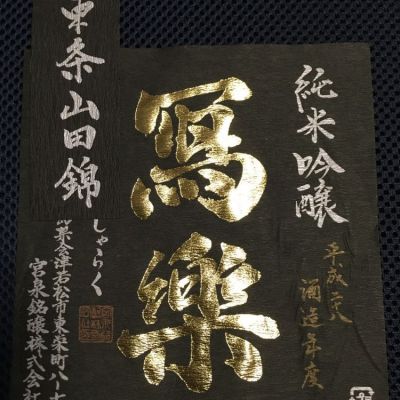 純米吟醸
平成二八
酒造年度
寫樂
しゃらく
東条山田錦
会津若松市東栄町八ー七
宮泉銘醸株式会社